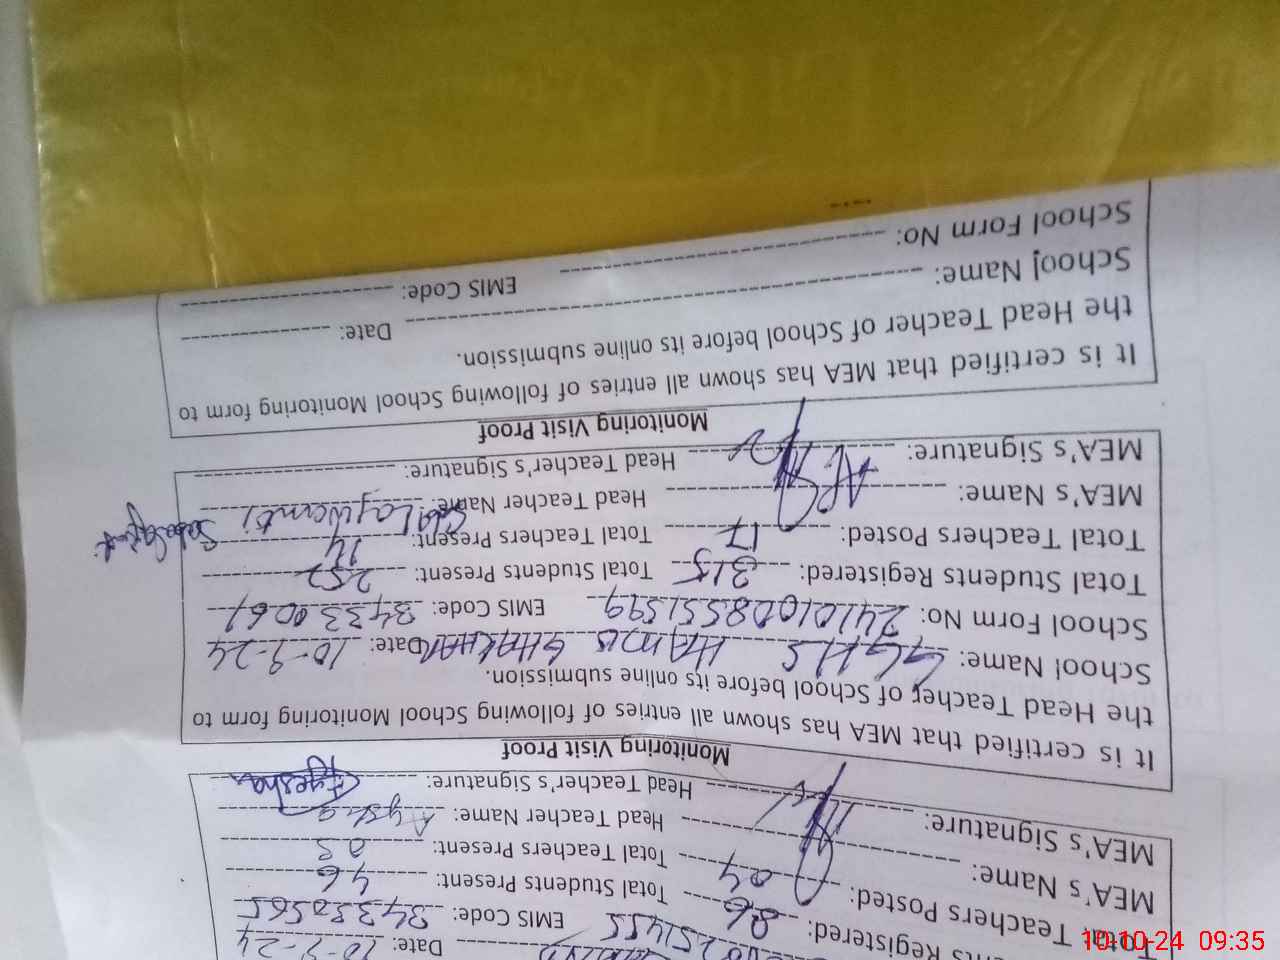 Date: 10-9-24
EMIS Code: 34330565
nts Registered: 86 Total Students Present: 46
Total Teachers Posted: 04 Total Teachers Present: 03
MEA's Name: Head Teacher Name: Ayesha
MEA's Signature: Head Teacher's Signature: Ayesha
Monitoring Visit Proof
It is certified that MEA has shown all entries of following School Monitoring form to
the Head Teacher of School before its online submission.
School Name: GGHS HAMID GHAKHAR Date: 10-9-24
School Form No: 24101008551599 EMIS Code: 34330061
Total Students Registered: 315 Total Students Present: 257
Total Teachers Posted: 17 Total Teachers Present: 14
MEA's Name: Head Teacher Name:
MEA's Signature: Head Teacher's Signature:
Monitoring Visit Proof
It is certified that MEA has shown all entries of following School Monitoring form to
the Head Teacher of School before its online submission.
School Name: Date:
School Form No: EMIS Code:
10-10-24 09:35